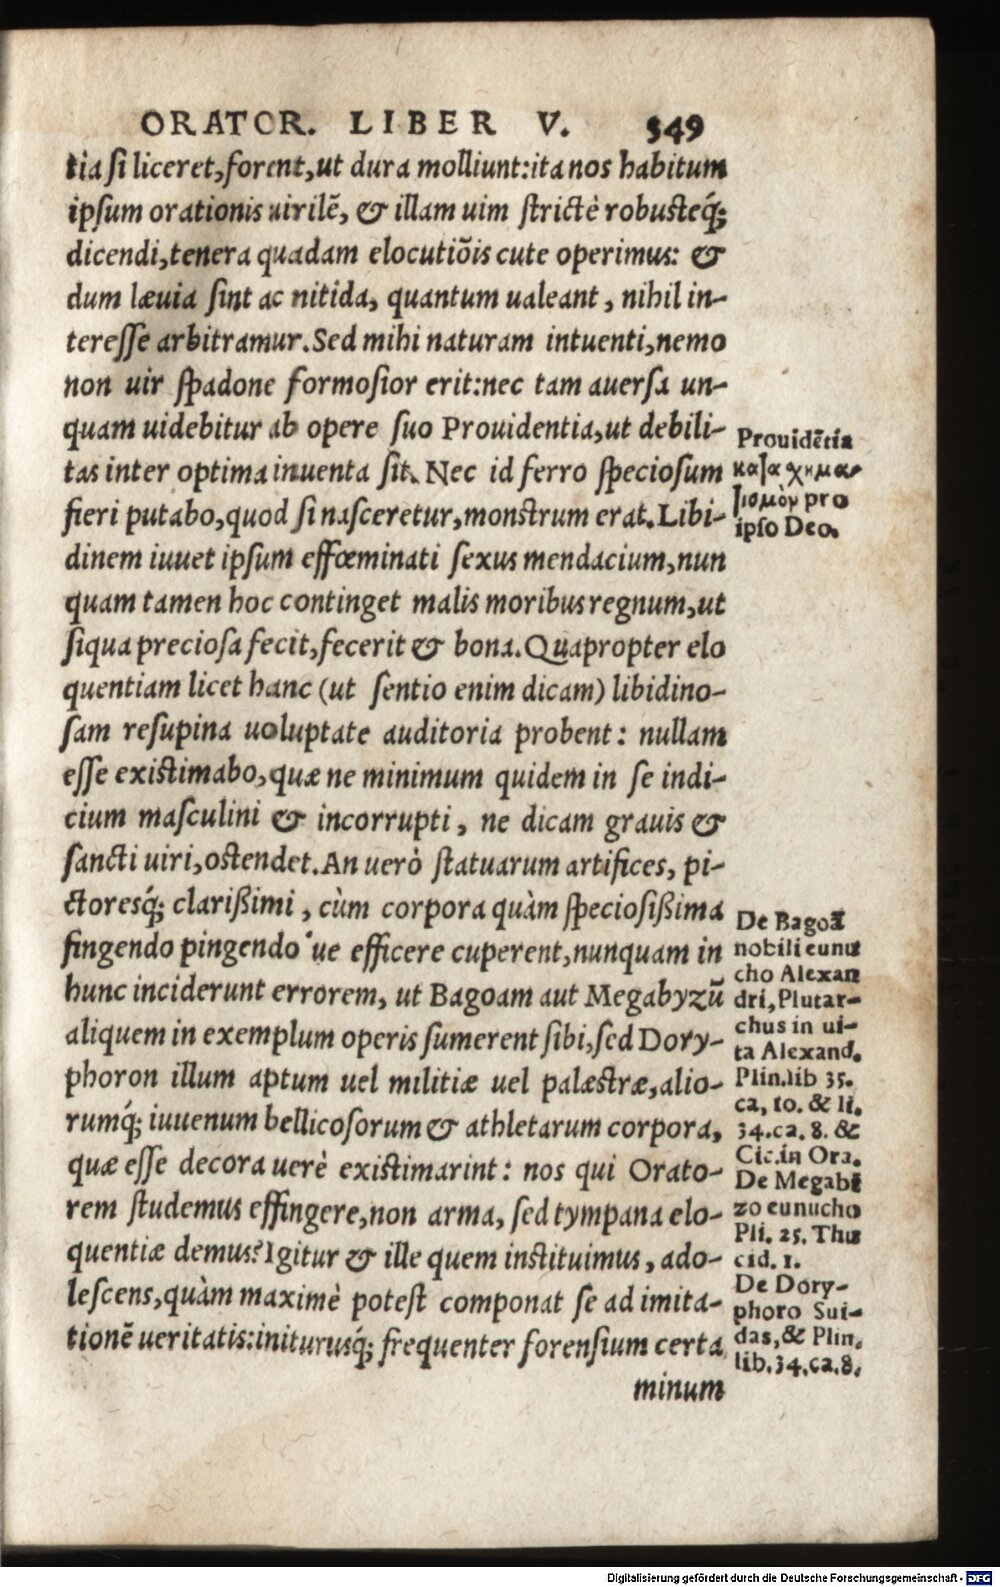 ORATOR. LIBER V. 349
tia si liceret, forent, ut dura molliunt: ita nos habitum
ipsum orationis uirilẽ, & illam uim strictè robusteq́;
dicendi, tenera quadam elocutiõis cute operimus: &
dum læuia sint ac nitida, quantum ualeant, nihil in-
teresse arbitramur. Sed mihi naturam intuenti, nemo
non uir spadone formosior erit: nec tam auersa un-
quam uidebitur ab opere suo Prouidentia, ut debili-
tas inter optima inuenta sit. Nec id ferro speciosum
fieri putabo, quod si nasceretur, monstrum erat. Libi-
dinem iuuet ipsum effœminati sexus mendacium, nun
quam tamen hoc continget malis moribus regnum, ut
siqua preciosa fecit, fecerit & bona. Quapropter elo
quentiam licet hanc (ut sentio enim dicam) libidino-
sam resupina uoluptate auditoria probent: nullam
esse existimabo, quæ ne minimum quidem in se indi-
cium masculini & incorrupti, ne dicam grauis &
sancti uiri, ostendet. An uerò statuarum artifices, pi-
ctoresq́; clarißimi, cùm corpora quàm speciosißima
fingendo pingendo'ue efficere cuperent, nunquam in
hunc inciderunt errorem, ut Bagoam aut Megabyzũ
aliquem in exemplum operis sumerent sibi, sed Dory-
phoron illum aptum uel militiæ uel palæstræ, alio-
rumq́; iuuenum bellicosorum & athletarum corpora,
quæ esse decora uerè existimarint: nos qui Orato-
rem studemus effingere, non arma, sed tympana elo-
quentiæ demus? Igitur & ille quem instituimus, ado-
lescens, quàm maximè potest componat se ad imita-
tionẽ ueritatis: initurusq́; frequenter forensium certa
minum
Prouidẽtia
καταχημα-
τισμὸν pro
ipso Deo.
De Bagoa
nobili eunu
cho Alexan
dri, Plutar-
chus in ui-
ta Alexand.
Plin. lib 35.
ca, 10. & li.
34. ca. 8. &
Cic. in Ora.
De Megabi
zo eunucho
Pli. 25. Thu
cid. 1.
De Dory-
phoro Sui-
das, & Plin.
lib. 34. ca. 8.
Digitalisierung gefördert durch die Deutsche Forschungsgemeinschaft - DFG